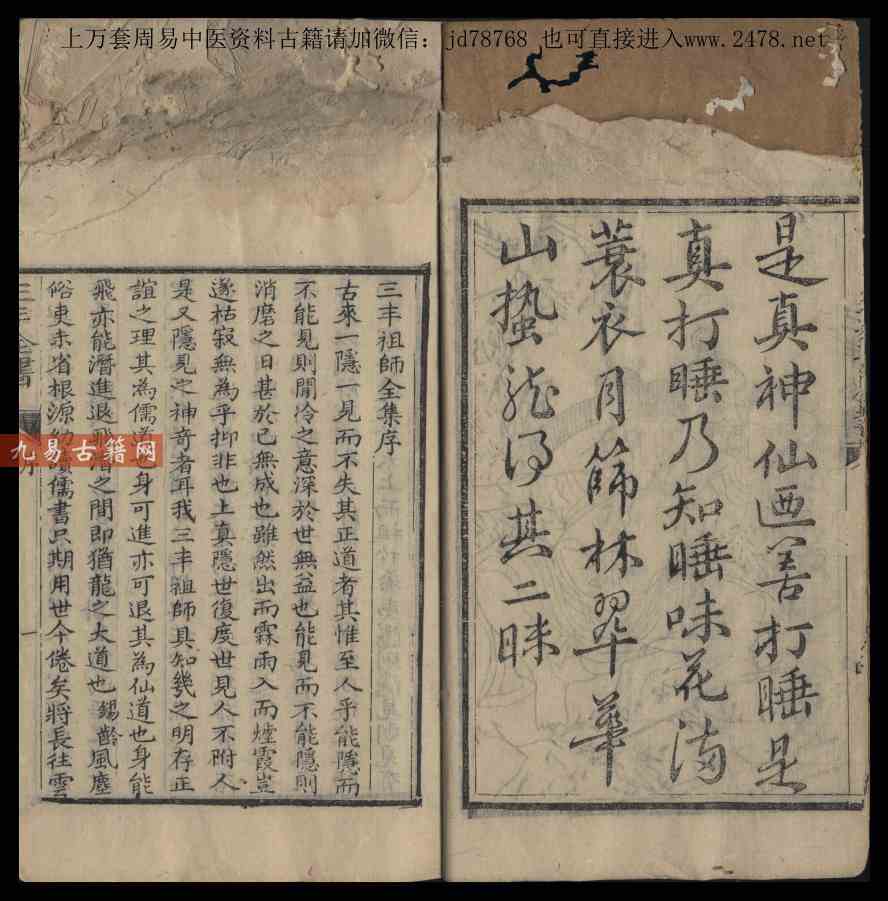 上万套周易中医资料古籍请加微信：jd78768 也可直接进入www.2478.net
是真神仙迺善打睡是
真打睡乃知睡味花滿
蓑衣月篩林翠華
山蟄龍得其二昧
三丰祖師全集序
古來一隱一見而不失其正道者其惟至人乎能隱而
不能見則閒冷之意深於世無益也能見而不能隱則
消磨之日甚於己無成也雖然出而霖雨入而煙霞豈
遂枯寂無為乎抑非也上真隱世復度世見人不附人
是又隱見之神奇者耳我三丰祖師具知幾之明存正
誼之理其為儒道也身可進亦可退其為仙道也身能
飛亦能潛進退飛潛之間即猶龍之大道也錫齡風塵
俗吏未省根源幼讀儒書只期用世今倦矣將長往雲
三丰全書
一
九易古籍网